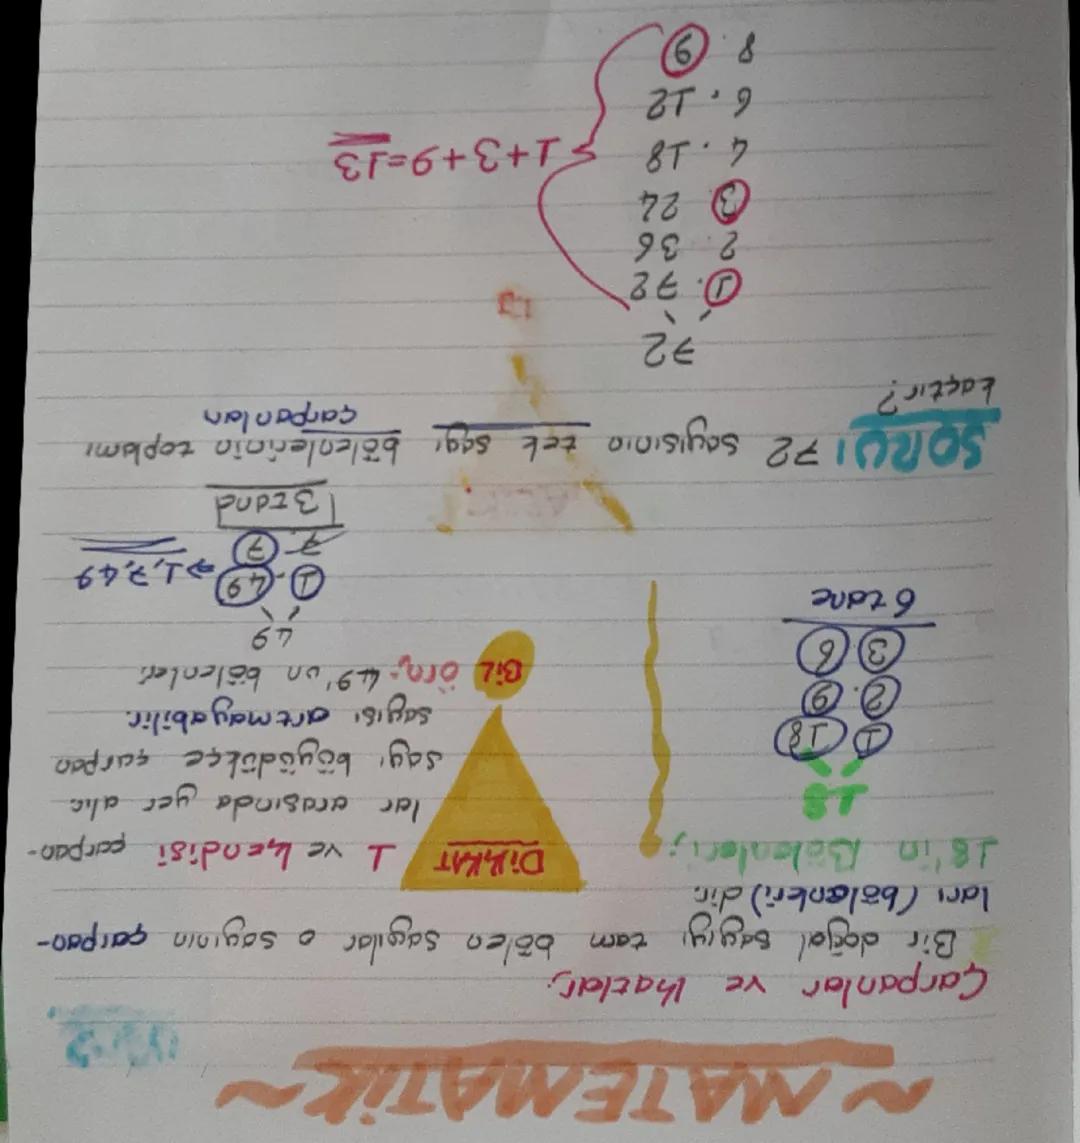 ~MATEMATİK~
Çarpanlar ve Katlar;
Bir doğal sayıyı tam bölen sayılar o sayının çarpan-
ları (bölenleri) dir.
18'in Bölenleri;
18
1 18
2. 9
3 6
6 tane
DİKKAT
1 ve kendisi çarpan-
lar arasında yer alır
sayı büyüdükçe çarpan
sayısı artmayabilir.
BİL
örn; 49'un bölenleri
49
1. 49 → 1,7,49
7. 7
3 tane
SORU: 72 sayısının tek sayı bölenlerinin toplamı
çarpanları
kaçtır?
72
1. 72
2. 36
3 24
4. 18
6. 12
8. 9
1+3+9=13